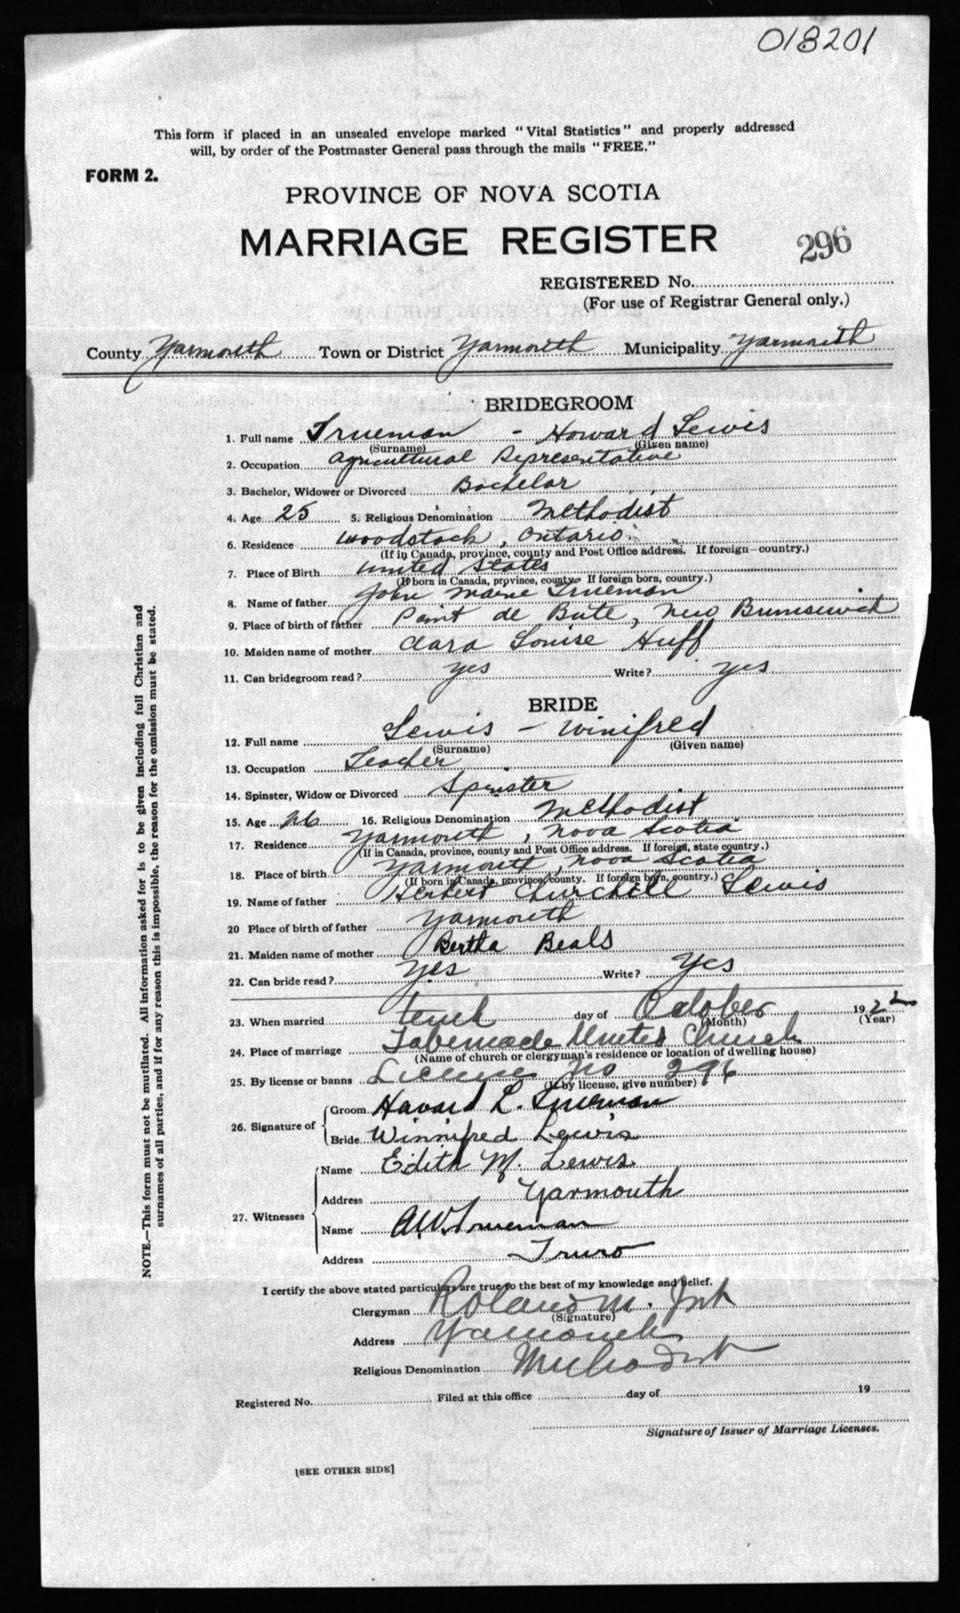 018201
This form if placed in an unsealed envelope marked "Vital Statistics" and properly addressed
will, by order of the Postmaster General pass through the mails "FREE."
FORM 2.
PROVINCE OF NOVA SCOTIA
MARRIAGE REGISTER
296
REGISTERED No.
(For use of Registrar General only.)
County Yarmouth Town or District Yarmouth Municipality Yarmouth
BRIDEGROOM
1. Full name Trueman - Howard Lewis
(Surname) (Given name)
2. Occupation Agricultural Representative
3. Bachelor, Widower or Divorced Bachelor
4. Age 25 5. Religious Denomination Methodist
6. Residence Woodstock, Ontario
(If in Canada, province, county and Post Office address. If foreign—country.)
7. Place of Birth United States
(If born in Canada, province, county. If foreign born, country.)
8. Name of father John Trueman
9. Place of birth of father Point de Bute, New Brunswick
10. Maiden name of mother Clara Louise Huff
11. Can bridegroom read? yes Write? yes
BRIDE
12. Full name Lewis - Winifred
(Surname) (Given name)
13. Occupation Teacher
14. Spinster, Widow or Divorced Spinster
15. Age 26 16. Religious Denomination Methodist
17. Residence Yarmouth, Nova Scotia
(If in Canada, province, county and Post Office address. If foreign, state country.)
18. Place of birth Yarmouth, Nova Scotia
(If born in Canada, province, county. If foreign born, country.)
19. Name of father Herbert Churchill Lewis
20 Place of birth of father Yarmouth
21. Maiden name of mother Bertha Beals
22. Can bride read? Yes Write? Yes
23. When married tenth day of October 1922
(Month) (Year)
24. Place of marriage Tabernacle United Church
(Name of church or clergyman's residence or location of dwelling house)
25. By license or banns License No 296
(If by license, give number)
26. Signature of
Groom Havard L. Trueman
Bride Winnifred Lewis
27. Witnesses
Name Edith M. Lewis
Address Yarmouth
Name A.W. Trueman
Address Truro
I certify the above stated particulars are true to the best of my knowledge and belief.
Clergyman Roland M.
(Signature)
Address Yarmouth
Religious Denomination Methodist
Registered No. Filed at this office day of 19
Signature of Issuer of Marriage Licenses.
[SEE OTHER SIDE]
NOTE.—This form must not be mutilated. All information asked for is to be given including full Christian and
surnames of all parties, and if for any reason this is impossible, the reason for the omission must be stated.